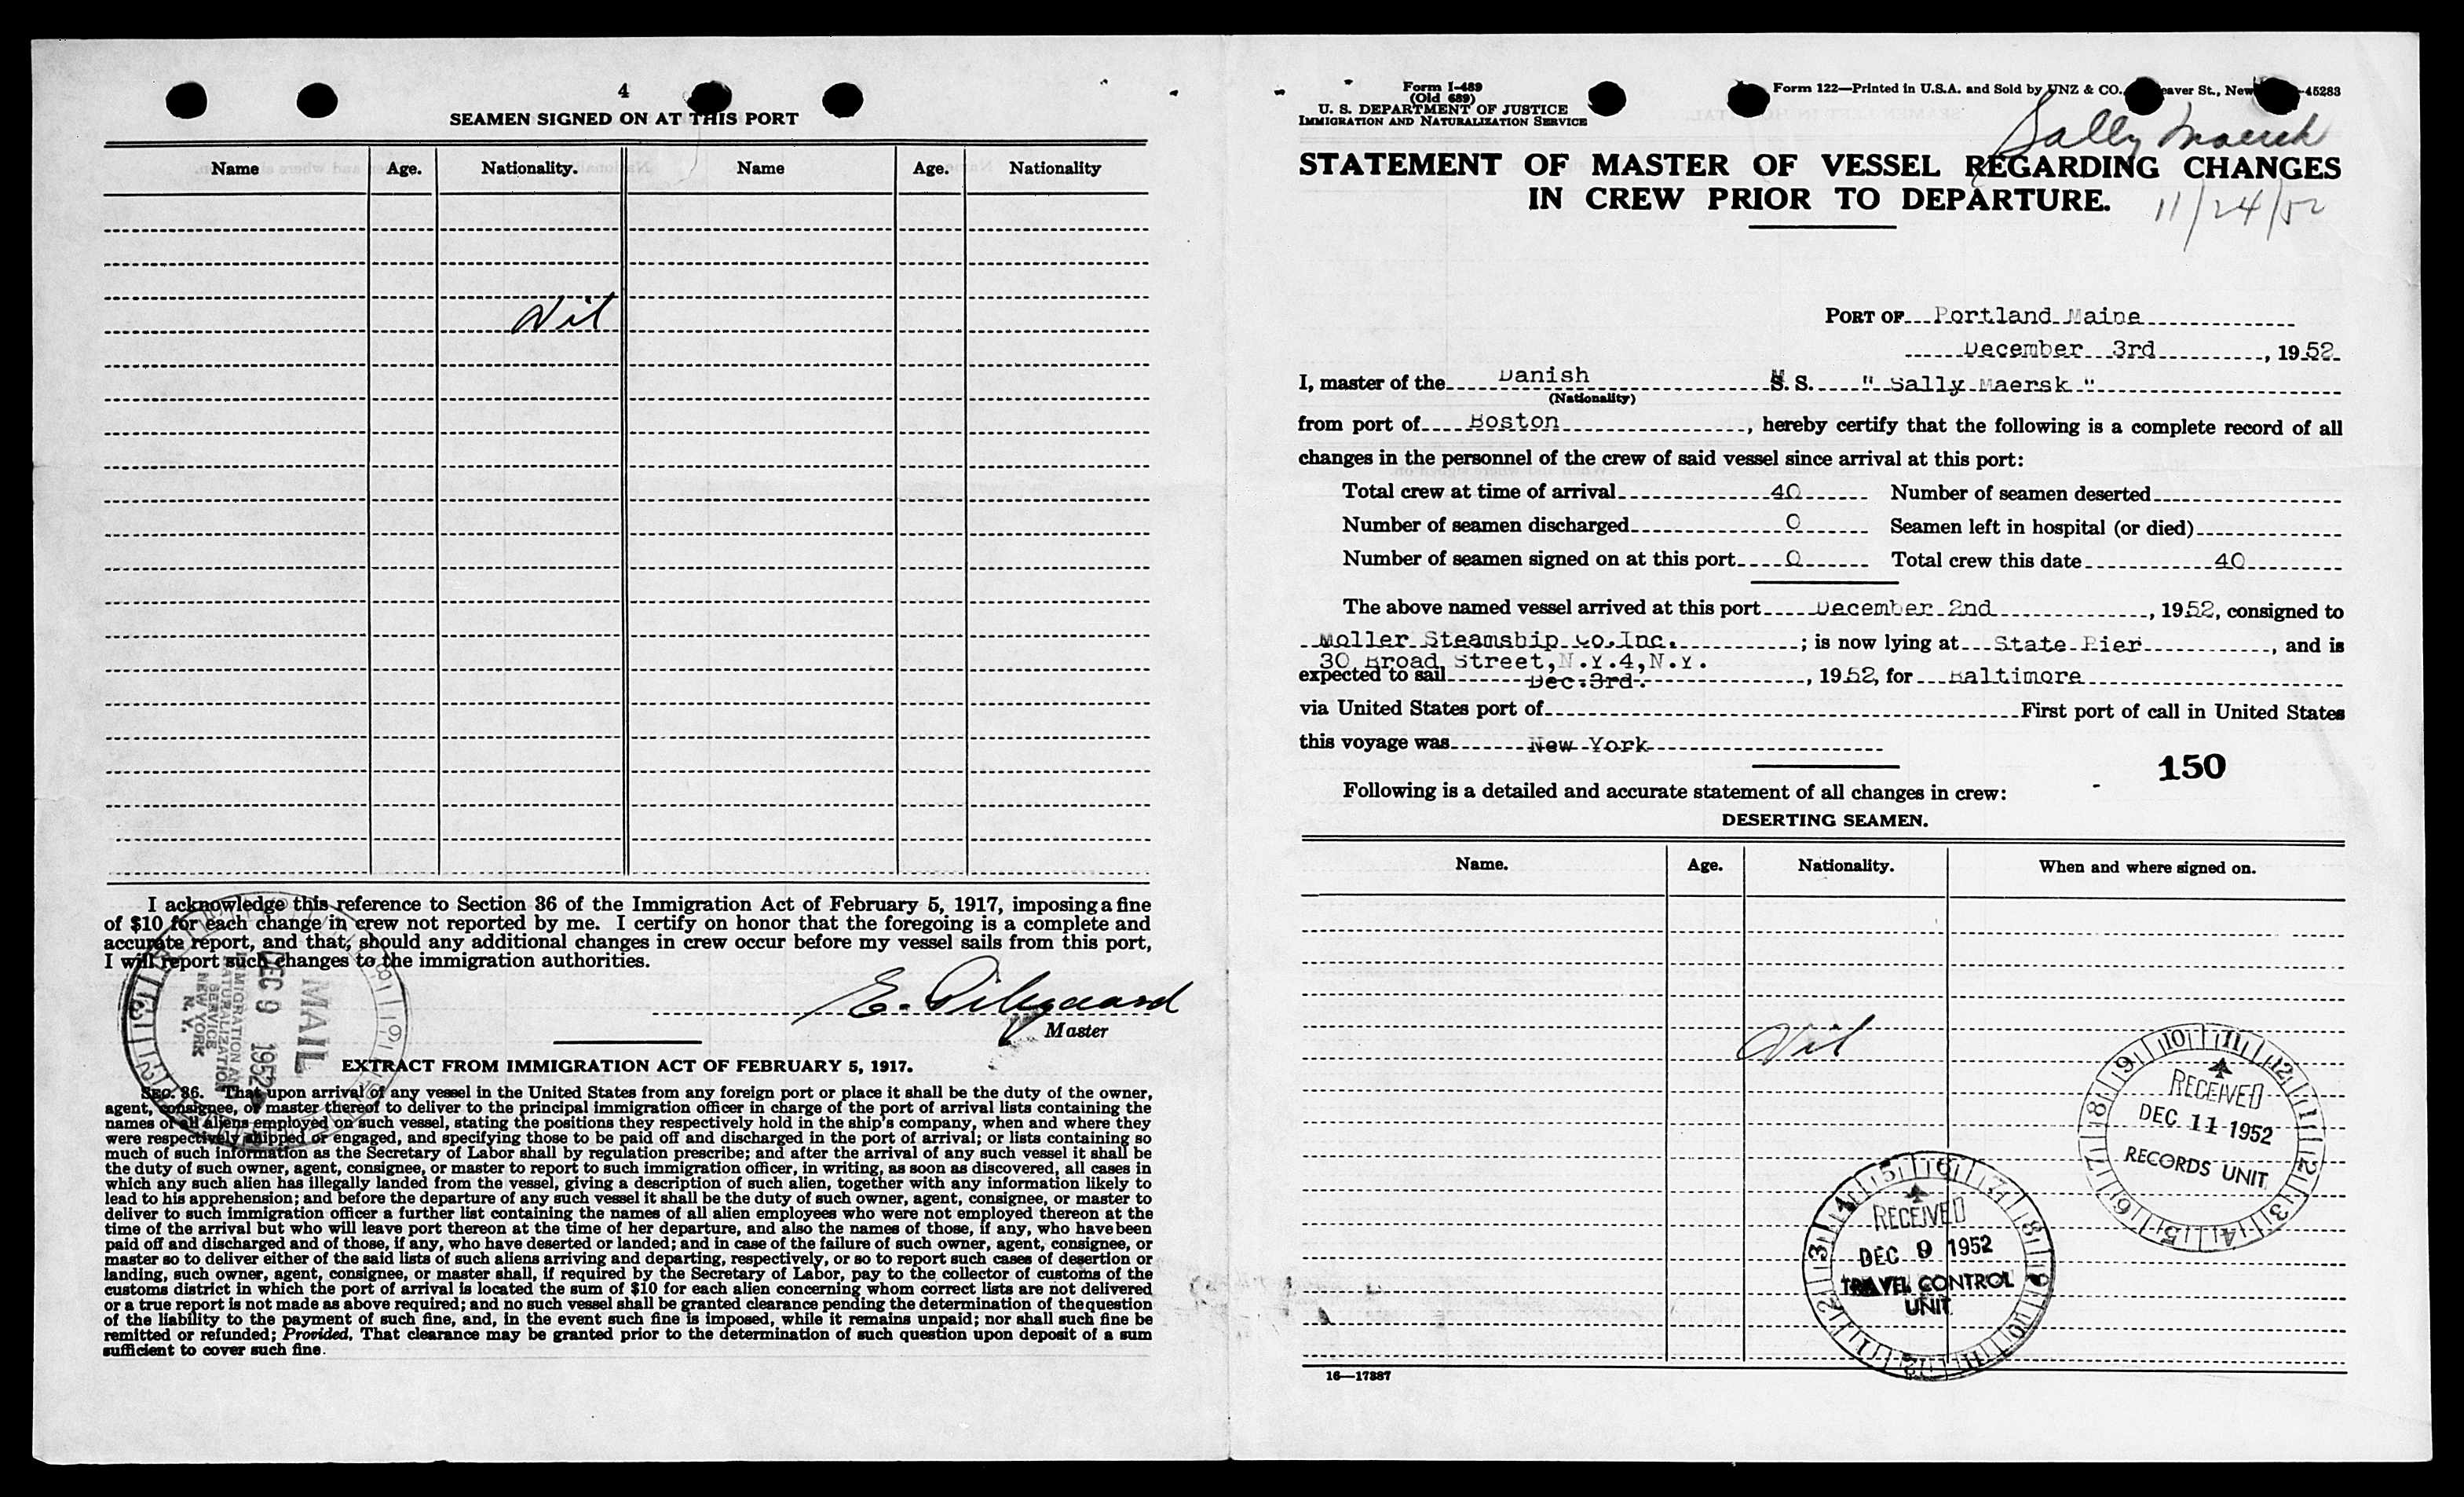 4
SEAMEN SIGNED ON AT THIS PORT
Name Age. Nationality. Name Age. Nationality
Nil
I acknowledge this reference to Section 36 of the Immigration Act of February 5, 1917, imposing a fine
of $10 for each change in crew not reported by me. I certify on honor that the foregoing is a complete and
accurate report, and that, should any additional changes in crew occur before my vessel sails from this port,
I will report such changes to the immigration authorities.
E.
Master
MAIL
DEC 9 1952
IMMIGRATION AN
NATURALIZATION
SERVICE
NEW YORK
N. Y.
EXTRACT FROM IMMIGRATION ACT OF FEBRUARY 5, 1917.
SEC. 36. That upon arrival of any vessel in the United States from any foreign port or place it shall be the duty of the owner,
agent, consignee, or master thereof to deliver to the principal immigration officer in charge of the port of arrival lists containing the
names of all aliens employed on such vessel, stating the positions they respectively hold in the ship's company, when and where they
were respectively shipped or engaged, and specifying those to be paid off and discharged in the port of arrival; or lists containing so
much of such information as the Secretary of Labor shall by regulation prescribe; and after the arrival of any such vessel it shall be
the duty of such owner, agent, consignee, or master to report to such immigration officer, in writing, as soon as discovered, all cases in
which any such alien has illegally landed from the vessel, giving a description of such alien, together with any information likely to
lead to his apprehension; and before the departure of any such vessel it shall be the duty of such owner, agent, consignee, or master to
deliver to such immigration officer a further list containing the names of all alien employees who were not employed thereon at the
time of the arrival but who will leave port thereon at the time of her departure, and also the names of those, if any, who have been
paid off and discharged and of those, if any, who have deserted or landed; and in case of the failure of such owner, agent, consignee, or
master so to deliver either of the said lists of such aliens arriving and departing, respectively, or so to report such cases of desertion or
landing, such owner, agent, consignee, or master shall, if required by the Secretary of Labor, pay to the collector of customs of the
customs district in which the port of arrival is located the sum of $10 for each alien concerning whom correct lists are not delivered
or a true report is not made as above required; and no such vessel shall be granted clearance pending the determination of the question
of the liability to the payment of such fine, and, in the event such fine is imposed, while it remains unpaid; nor shall such fine be
remitted or refunded; Provided, That clearance may be granted prior to the determination of such question upon deposit of a sum
sufficient to cover such fine.
Form I-489
(Old 689)
U. S. DEPARTMENT OF JUSTICE
IMMIGRATION AND NATURALIZATION SERVICE
Form 122—Printed in U.S.A. and Sold by UNZ & CO., eaver St., New -45283
Sally Maersk
STATEMENT OF MASTER OF VESSEL REGARDING CHANGES
IN CREW PRIOR TO DEPARTURE.
11/24/52
PORT OF Portland Maine
December 3rd, 1952
I, master of the Danish M. S. " Sally Maersk "
(Nationality)
from port of Boston, hereby certify that the following is a complete record of all
changes in the personnel of the crew of said vessel since arrival at this port:
Total crew at time of arrival 40 Number of seamen deserted
Number of seamen discharged 0 Seamen left in hospital (or died)
Number of seamen signed on at this port 0 Total crew this date 40
The above named vessel arrived at this port December 2nd, 1952, consigned to
Moller Steamship Co.Inc.; is now lying at State Pier, and is
30 Broad Street,N.Y.4,N.Y.
expected to sail Dec.3rd., 1952, for Baltimore
via United States port of First port of call in United States
this voyage was New York
150
Following is a detailed and accurate statement of all changes in crew:
DESERTING SEAMEN.
Name. Age. Nationality. When and where signed on.
Nil
RECEIVED
DEC 11 1952
RECORDS UNIT
RECEIVED
DEC 9 1952
TRAVEL CONTROL
UNIT
16—17387